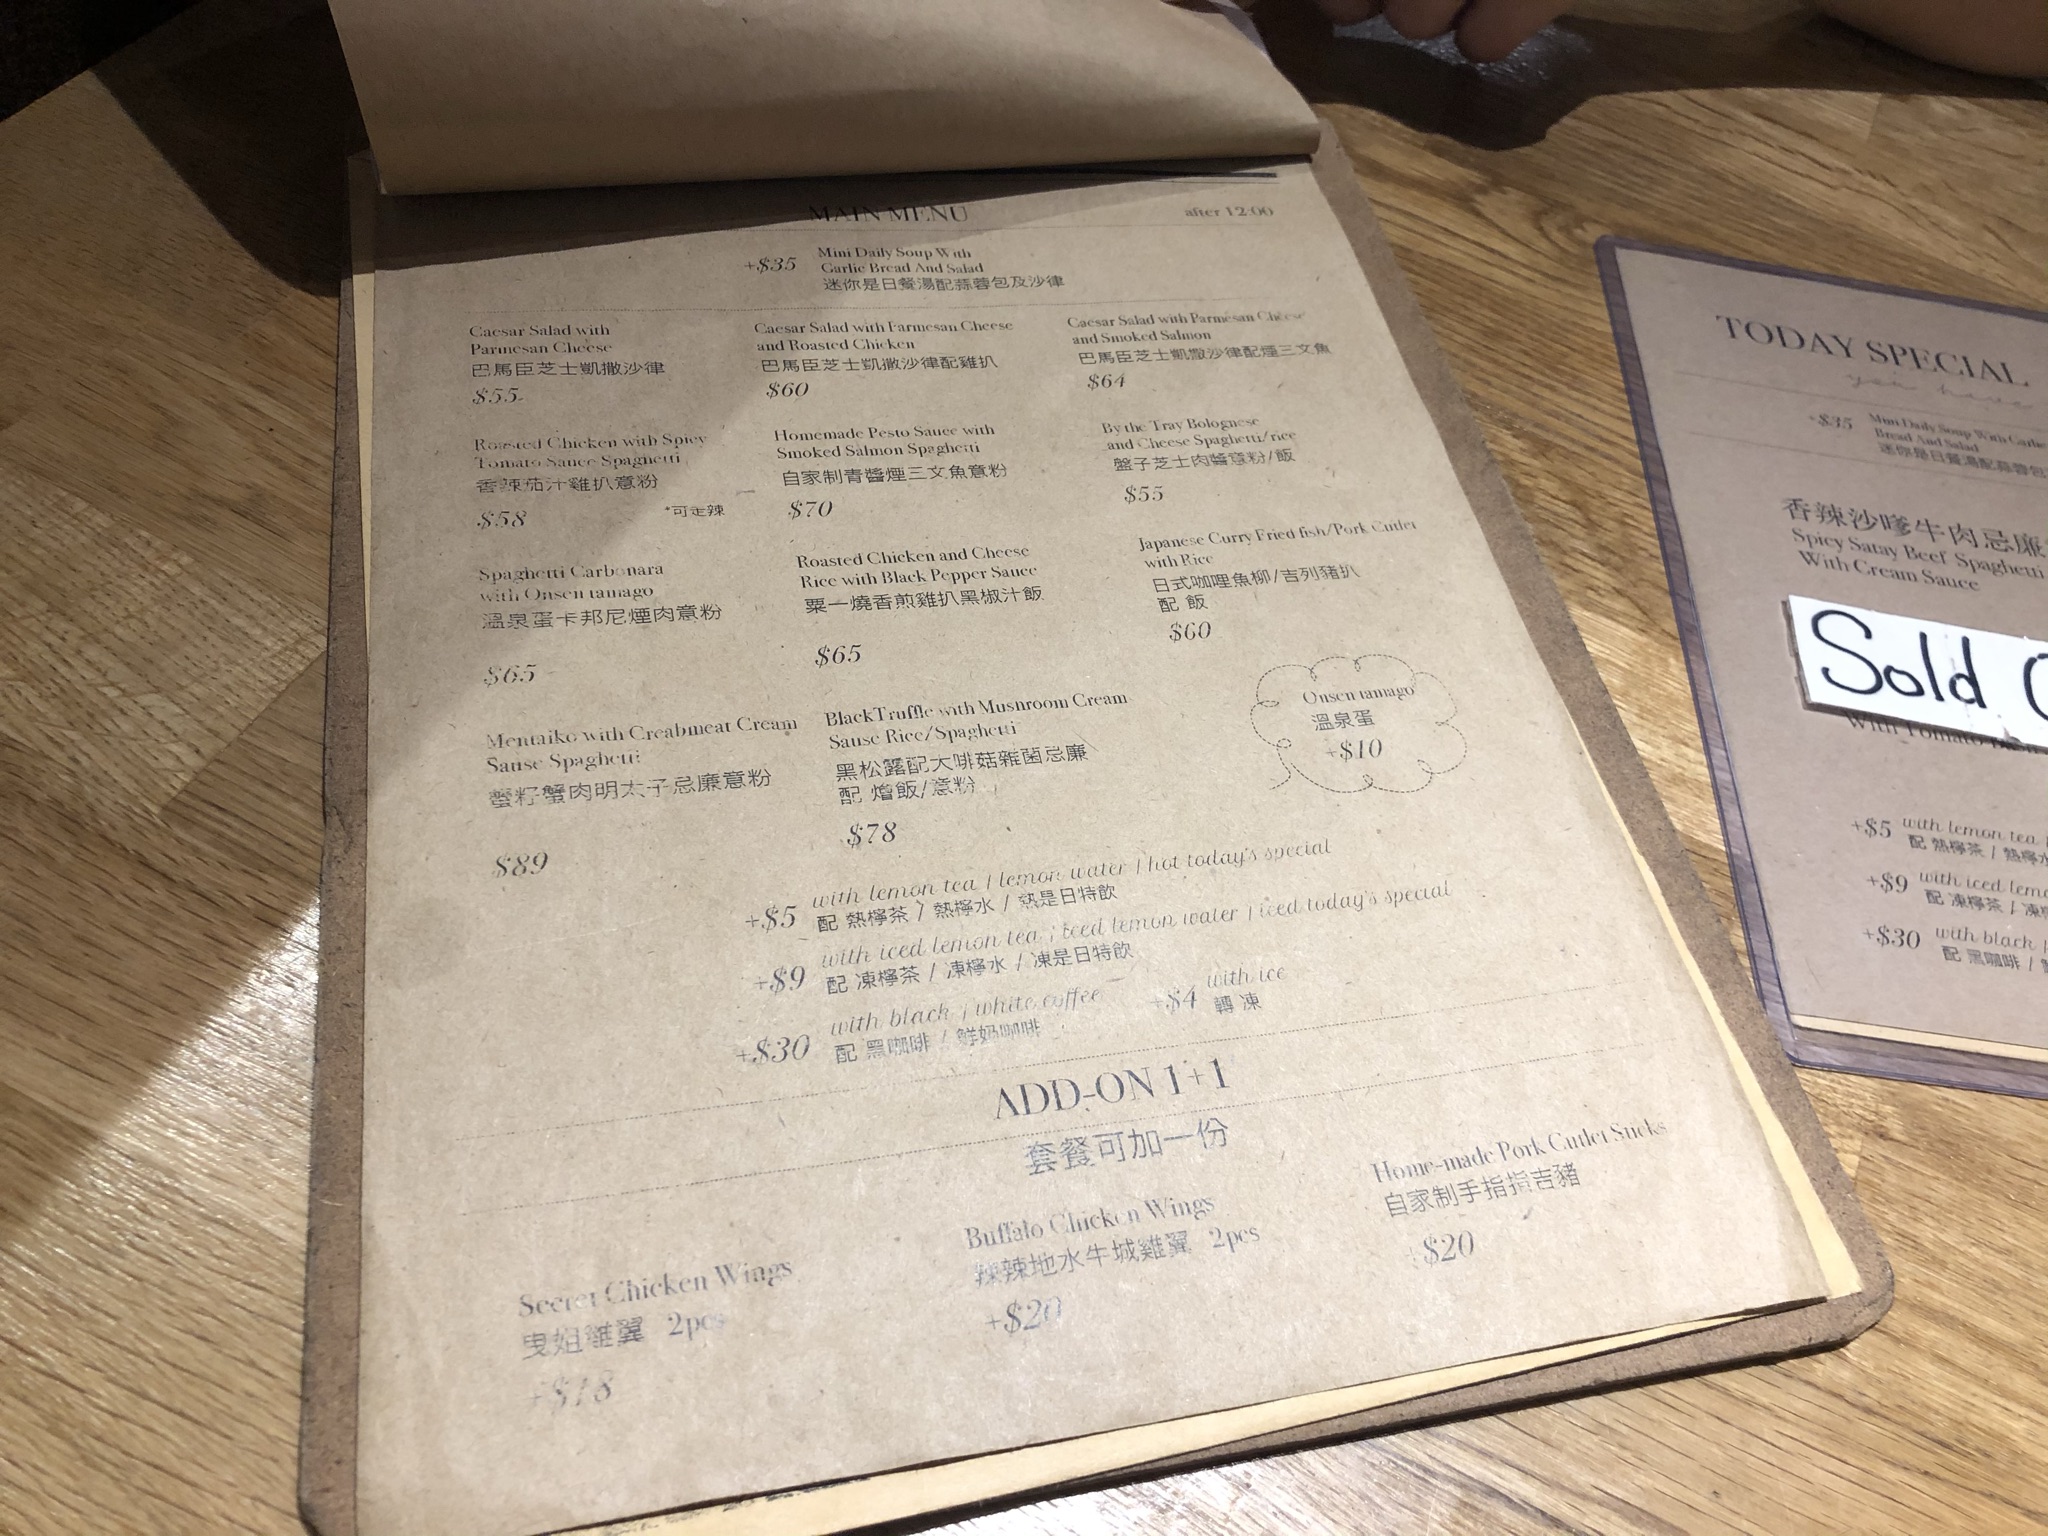 MAIN MENU
after 12:00
+$35
Mini Daily Soup With
Garlic Bread And Salad
迷你是日餐湯配蒜蓉包及沙律
Caesar Salad with
Parmesan Cheese
巴馬臣芝士凱撒沙律
$55
Caesar Salad with Parmesan Cheese
and Roasted Chicken
巴馬臣芝士凱撒沙律配雞扒
$60
Caesar Salad with Parmesan Cheese
and Smoked Salmon
巴馬臣芝士凱撒沙律配煙三文魚
$64
Roasted Chicken with Spicy
Tomato Sauce Spaghetti
香辣茄汁雞扒意粉
$58
*可走辣
Homemade Pesto Sauce with
Smoked Salmon Spaghetti
自家制青醬煙三文魚意粉
$70
By the Tray Bolognese
and Cheese Spaghetti/rice
盤子芝士肉醬意粉/飯
$55
Spaghetti Carbonara
with Onsen tamago
溫泉蛋卡邦尼煙肉意粉
$65
Roasted Chicken and Cheese
Rice with Black Pepper Sauce
粟一燒香煎雞扒黑椒汁飯
$65
Japanese Curry Fried fish/Pork Cutlet
with Rice
日式咖哩魚柳/吉列豬扒
配 飯
$60
Mentaiko with Creabmeat Cream
Sause Spaghetti
蟹籽蟹肉明太子忌廉意粉
$89
BlackTruffle with Musnroom Cream
Sause Rice/Spaghetti
黑松露配大啡菇雜菌忌廉
配 燴飯/意粉
$78
Onsen tamago
溫泉蛋
+$10
+$5 with lemon tea / lemon water / hot today's special
配 熱檸茶 / 熱檸水 / 熱是日特飲
+$9 with iced lemon tea / iced lemon water / iced today's special
配 凍檸茶 / 凍檸水 / 凍是日特飲
+$30 with black / white coffee
配 黑咖啡 / 鮮奶咖啡
+$4 with ice
轉 凍
ADD-ON 1+1
套餐可加一份
Secret Chicken Wings
曳姐雞翼 2pcs
+$18
Buffalo Chicken Wings
辣辣地水牛城雞翼 2pcs
+$20
Home-made Pork Cutlet Sticks
自家制手指指吉豬
+$20
TODAY SPECIAL
+$35
Mini Daily Soup With Garlic
Bread And Salad
迷你是日餐湯配蒜蓉包
香辣沙嗲牛肉忌廉
Spicy Satay Beef Spaghetti
With Cream Sauce
Sold
With Tomato
+$5 with lemon tea
配 熱檸茶 / 熱檸水
+$9 with iced
配 凍檸茶 /
+$30 with black
配 黑咖啡 /